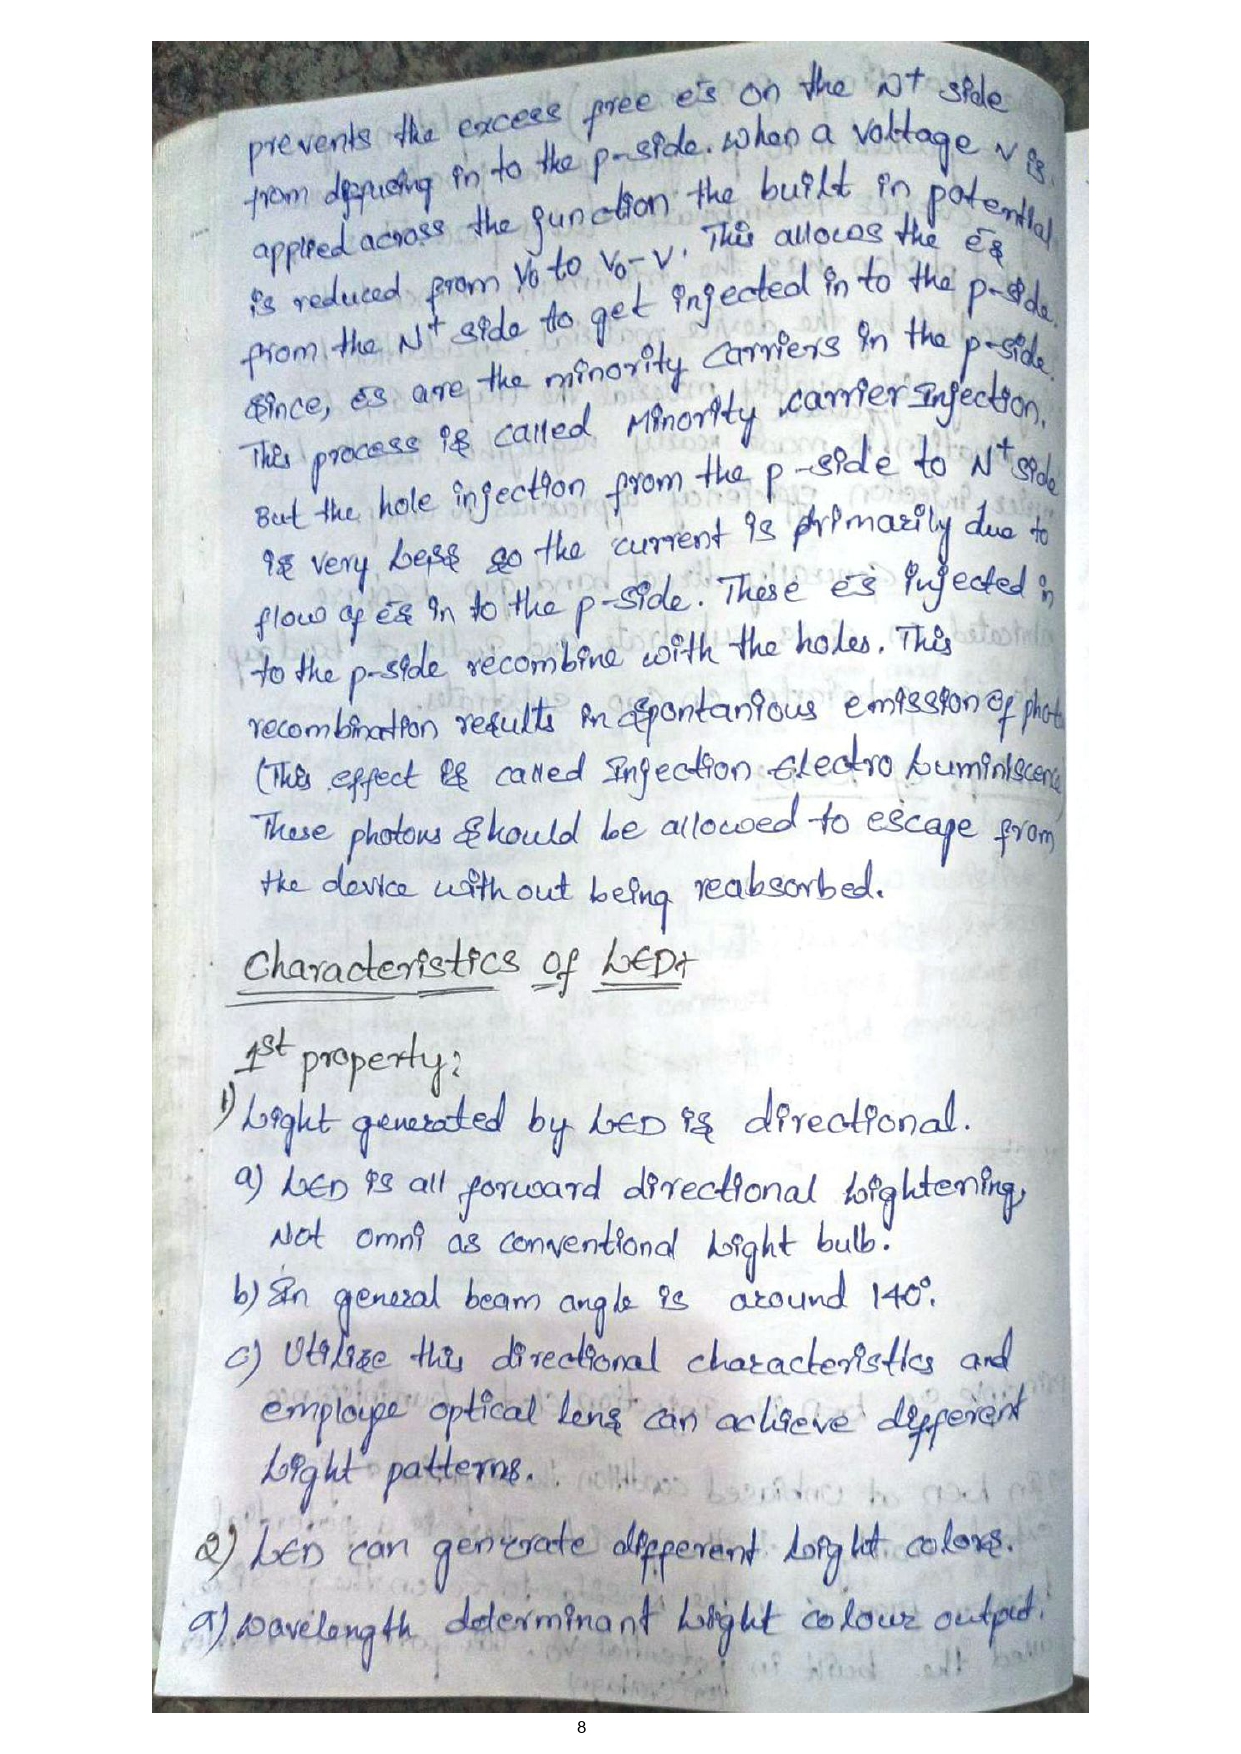 prevents the excess free e⁻s on the N⁺ side
from diffusing in to the p-side. when a voltage V is
applied across the junction the built in potential
is reduced from V₀ to V₀-V. This allows the e⁻s
from the N⁺ side to get injected in to the p-side.
since, e⁻s are the minority carriers in the p-side.
This process is called Minority carrier Injection.
But the hole injection from the p-side to N⁺ side
is very Less so the current is primarily due to
flow of e⁻s in to the p-side. These e⁻s injected in
to the p-side recombine with the holes. This
recombination results in spontanious emission of phot
(This effect is called Injection Electro Luminiscence
These photons should be allowed to escape from
the device without being reabsorbed.
Characteristics of LED:
1st property:
1) Light generated by LED is directional.
a) LED is all forward directional Lightening,
Not omni as conventional Light bulb.
b) In general beam angle is around 140°.
c) Utilise this directional characteristics and
employe optical lens can achieve different
Light patterns.
2) LED can generate different Light colors.
a) wavelength determinant Light colour output.
8